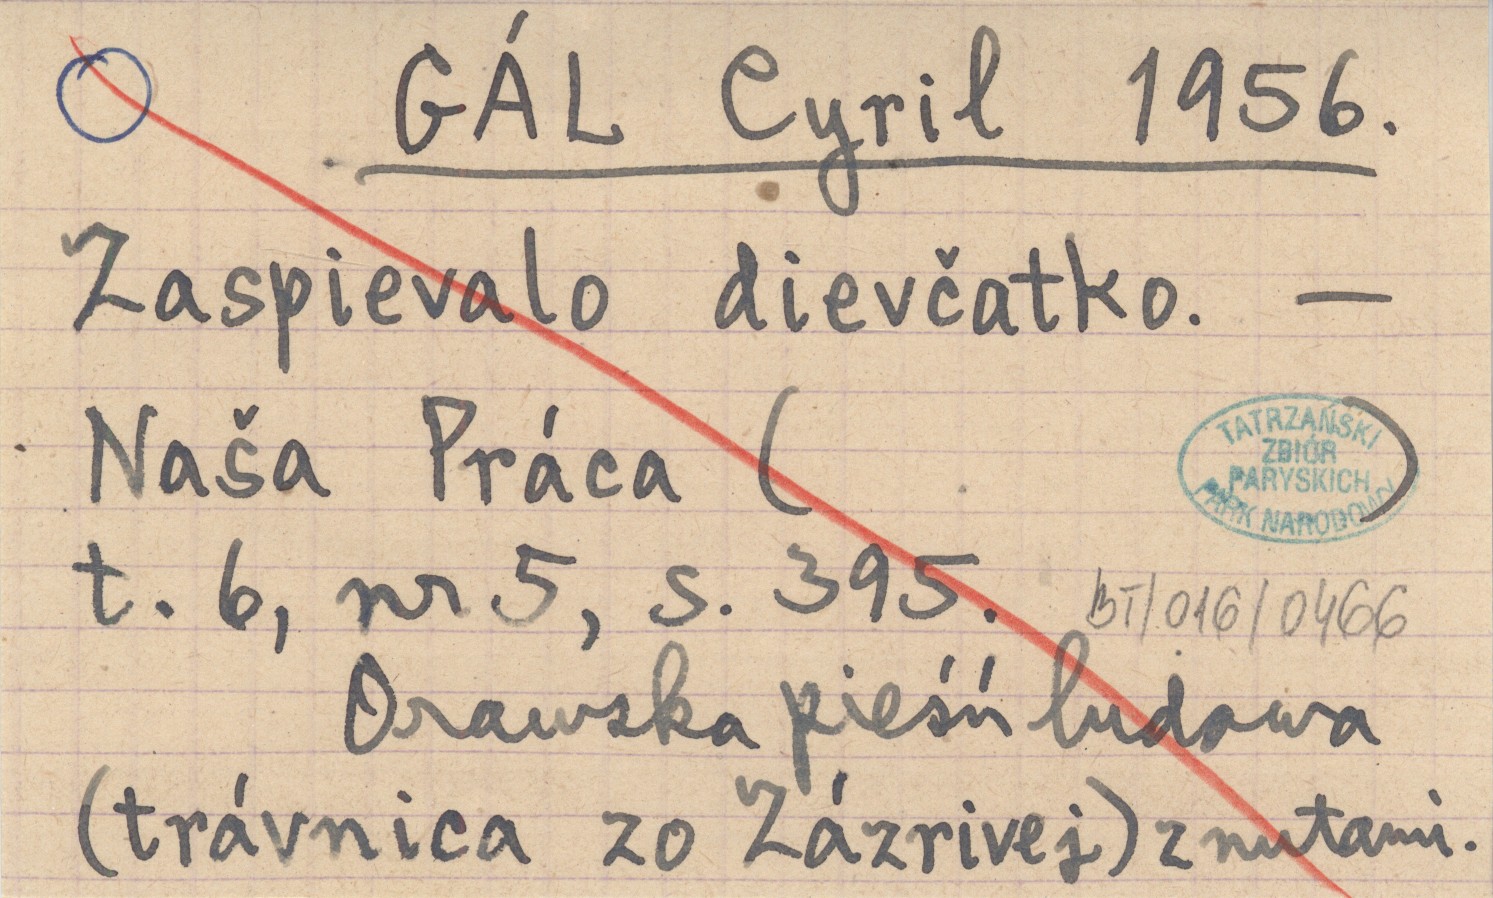 GÁL Cyril 1956.
Zaspievalo dievčatko. —
Naša Práca ( )
TATRZAŃSKI
ZBIÓR
PARYSKICH
PARK NARODOWY
t. 6, nr 5, s. 395.
BT/016/0466
Orawska pieśń ludowa
(trávnica zo Zázrivej) z nutami.